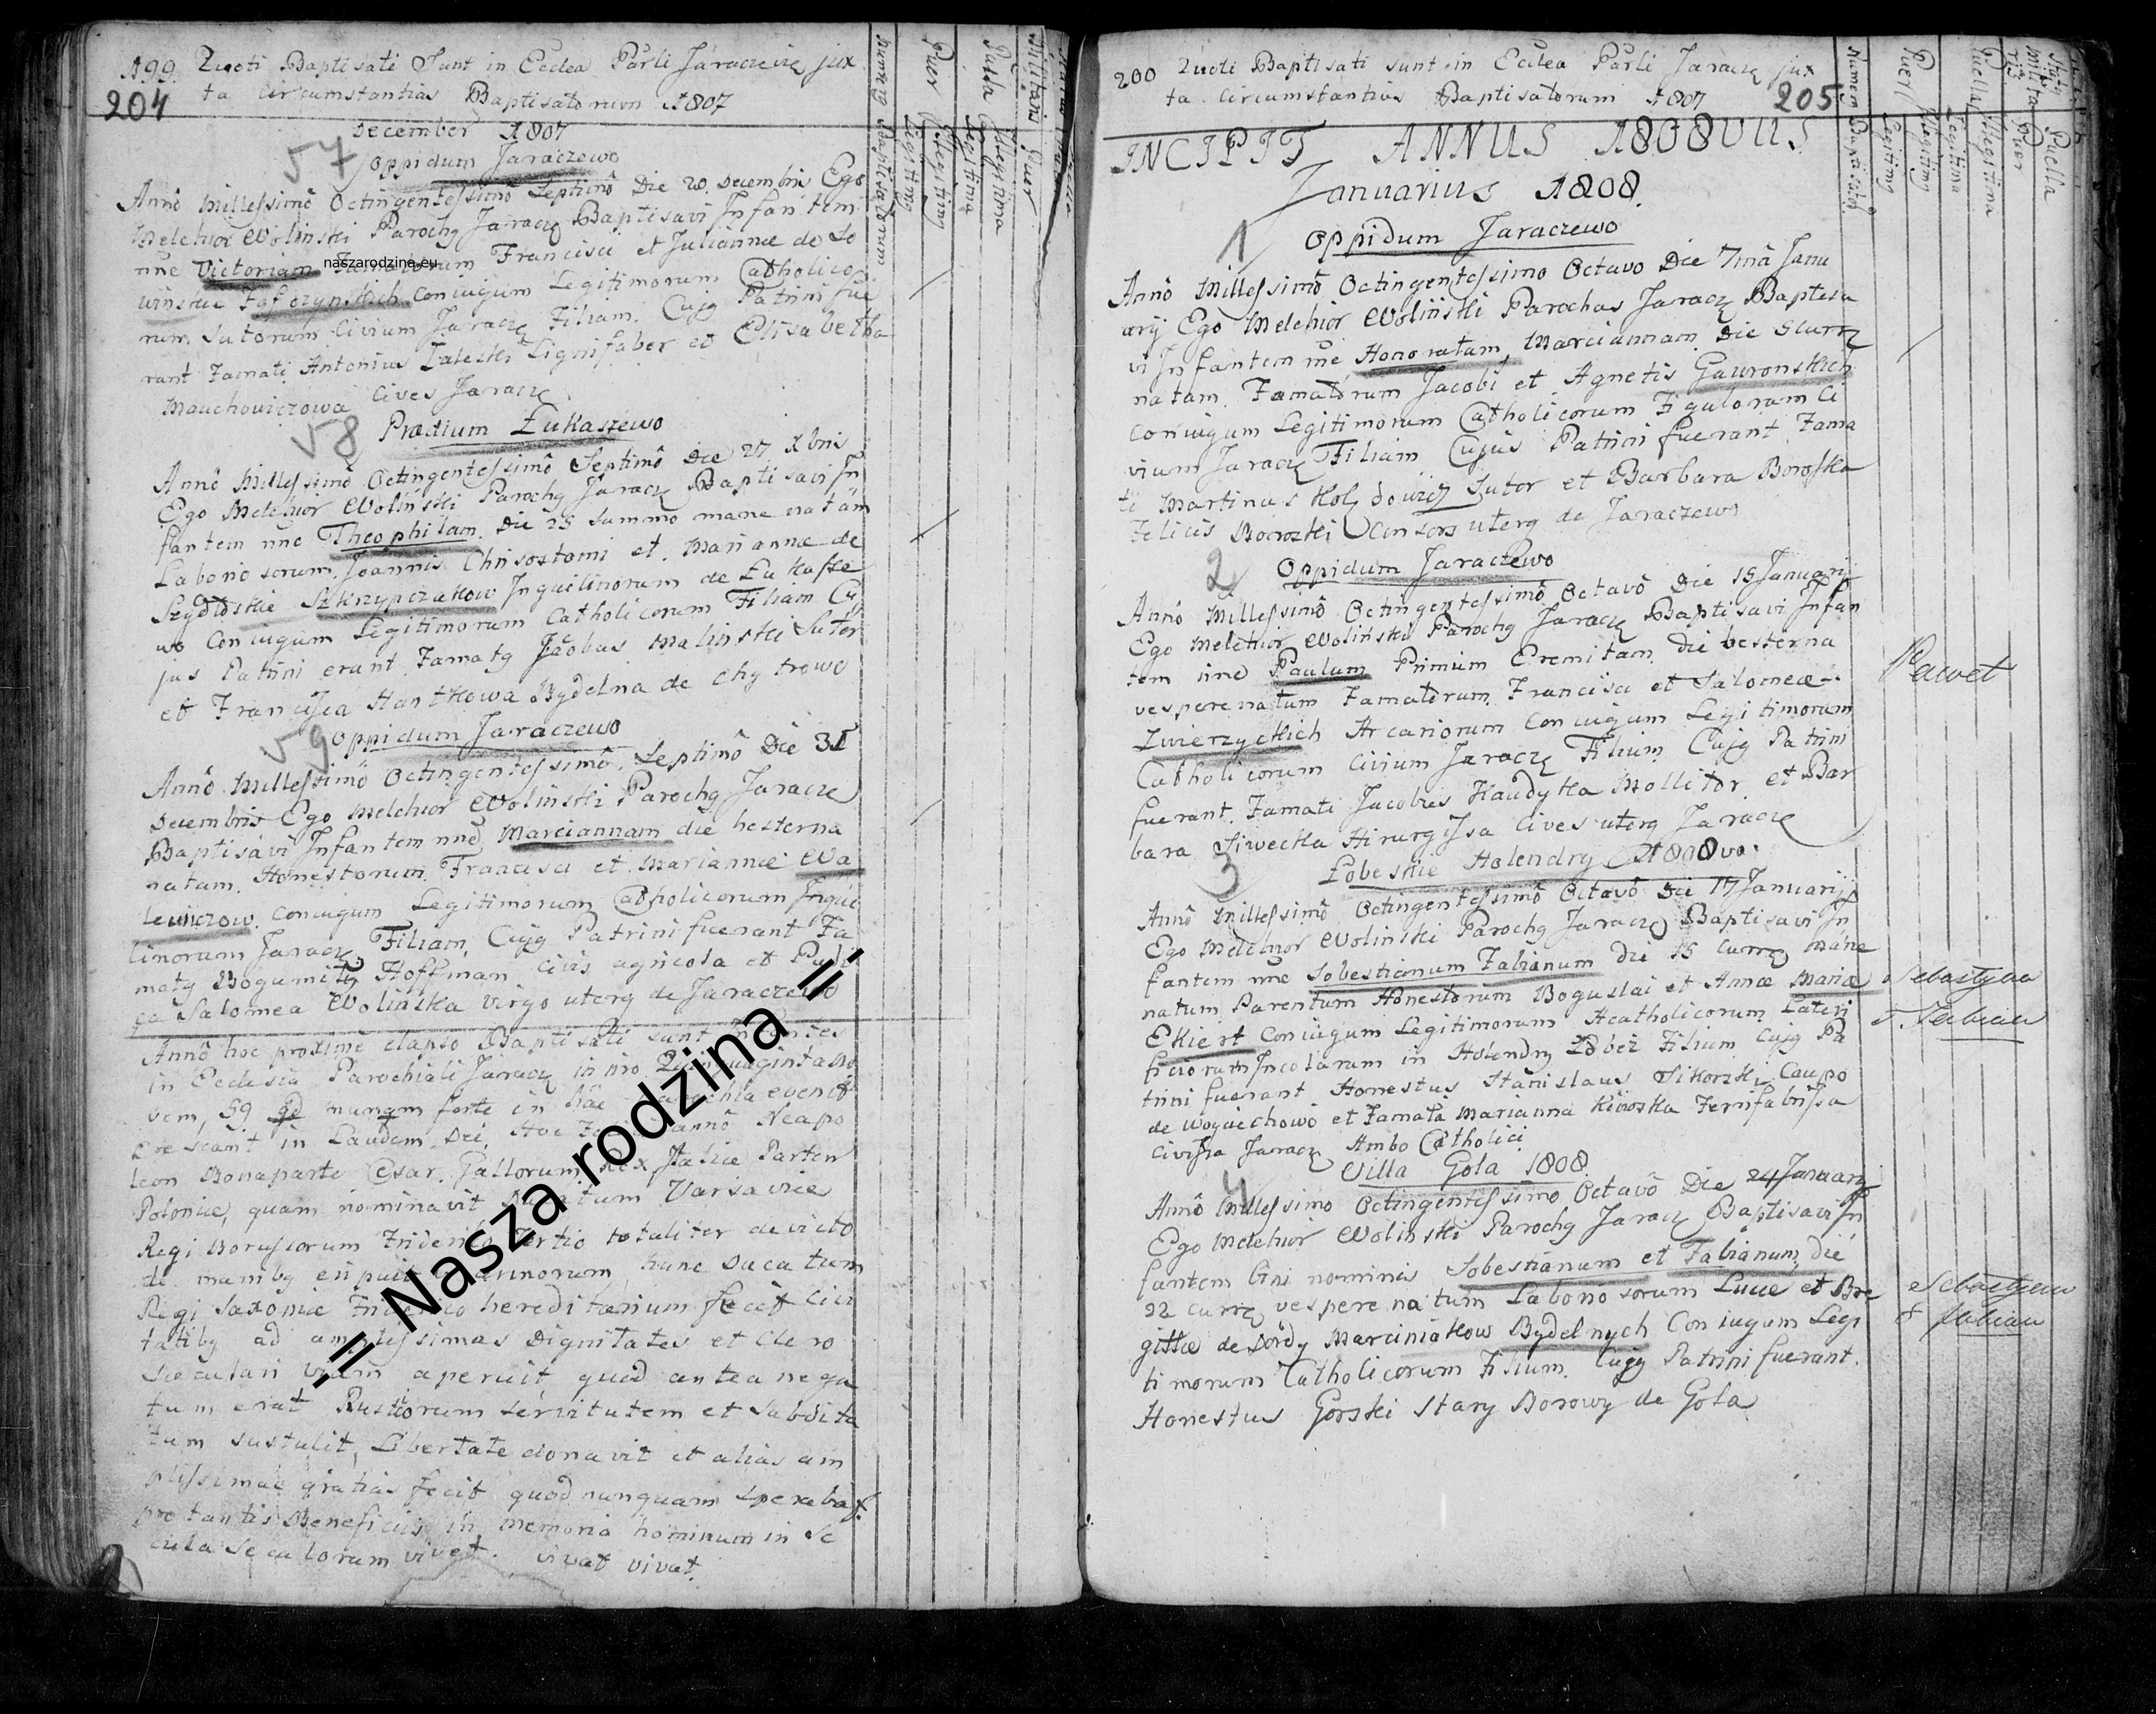 199. Quoti Baptisati Sunt in Ecclea Parli Jaraczevie jux
204 ta Circumstantias Baptisatorum 1807
Numerus Baptisatorum
Puer Legitimg Illegitimg
Puella Legitima Illegitima
December 1807
57
Oppidum Jaraczewo
Anno Millessimo Octingentessimo Septimo Die 20 Decembris Ego
Melchior Wolinski Parochg Jaracz Baptisavi Infantem
nne Victoriam Famatorum Francisci et Juliannae de Lo
naszarodzina.eu
Coniugum Legitimorum Catholico
rum Sutorum Civium Jaracz Filiam. Cujg Patrini fue
rant Famati Antonius Zaleski Lignifaber et Elisabetha
Mauchowiczowa Cives Jaracz
58
Praedium Łukaszewo
Anno Millessimo Octingentessimo Septimo Die 27 Xbris
Ego Melchior Wolinski Parochg Jaracz Baptisavi In
fantem nne Theophilam. Die 25 summo mane natam
Laboriosorum Joannis Chrisostomi et Mariannae de
Szydloskie Szkrzypczakow Inquilinorum de Lukasze
wo Coniugum Legitimorum Catholicorum Filiam Cu
jus Patrini erant Famatg Jacobus Malinski Sutor
et Francisca Hantkowa Bydelna de Chytrowo
59
Oppidum Jaraczewo
Anno Millessimo Octingentessimo Septimo Die 31
Decembris Ego Melchior Wolinski Parochg Jaracz
Baptisavi Infantem nne Marciannam die hesterna
natam. Honestorum Francisci et Mariannae Wa
lewiczow Coniugum Legitimorum Catholicorum Inqui
linorum Jaracz Filiam Cujg Patrini fuerant Fa
matg Bogumilg Hoffman civis agricola et Pudi
ca Salomea Wolinska virgo uterq de Jaraczewo
Anno hoc proxime elapso Baptisati sunt Infantes
in Ecclesia Parochiali Jaracz in nro Quinquaginta no
vem, 59 qd nunqm forte in hac evenit
crescant in Laudem Dei, Hoc anno Neapo
leon Bonaparte Cesar Gallorum Rex Italiae Partem
Poloniae, quam nominavit Ducatum Varsaviae
Regi Borussorum Friderico Tertio totaliter devicto
de manibg eripuit armorum, hunc Ducatum
Regi Saxoniae Friderico hereditarium fecit Civi
tatibg ad amplissimas Dignitates et Clero
Seculari viam aperuit quod antea nega
tum erat Rusticorum servitutem et subdita
tum sustulit, Libertate donavit et alias am
plissimas gratias fecit quod nunquam sperabat.
pro tantis Beneficiis in memoria hominum in Se
cula Seculorum vivet. vivat vivat.
= Nasza rodzina =
200 Quoti Baptisati sunt in Ecclea Parli Jaracz jux
ta Circumstantias Baptisatorum 1807 205
Puella Illegitima
Puer
Puella
INCIPIT ANNUS 1808VUS
Januarius 1808.
1
Oppidum Jaraczewo
Anno Millessimo Octingentessimo Octavo Die 7ma Janu
arij Ego Melchior Wolinski Parochus Jaracz Baptisa
vi Infantem nne Honoratam, Marciannam. Die 5 curr
natam. Famatorum Jacobi et Agnetis Gawronskich
Coniugum Legitimorum Catholicorum Figulorum Ci
vium Jaracz Filiam Cujus Patrini fuerant Fama
ti Martinus Sutor et Barbara Boroska
Felicis Boroski Consors uterq de Jaraczewo
2
Oppidum Jaraczewo
Anno Millessimo Octingentessimo Octavo Die 15 Januarij
Ego Melchior Wolinski Parochg Jaracz Baptisavi Infan
tem nne Paulum Primum Eremitam. Die hesterna
vespere natum Famatorum Francisci et Salomeae
Zwierzyckich Arcariorum Coniugum Legitimorum
Catholicorum Civium Jaracz Filium Cujg Patrini
fuerant Famati Jacobus Kaudyka Mollitor et Bar
bara Siwecka Hirurgissa Cives uterq Jaracz
Paweł
3
Łobeskie Holendry 1808vo.
Anno Millessimo Octingentessimo Octavo Die 17 Januarij
Ego Melchior Wolinski Parochg Jaracz Baptisavi In
fantem nne Sobestianum Fabianum Die 15 Curr mane
natum Parentum Honestorum Boguslai et Annae Mariae
Ekiert Coniugum Legitimorum Acatholicorum Lateri
ficiorum Incolarum in Holendry Łobez Filium Cujg Pa
trini fuerant Honestus Stanislaus Sikorski Caupo
de Woyciechowo et Famata Marianna Kiwoska Ferrifabrissa
Civissa Jaracz Ambo Catholici
Sebastyan
F. Fabian
4
Villa Gola 1808.
Anno Millessimo Octingentessimo Octavo Die 24 Januarij
Ego Melchior Wolinski Parochg Jaracz Baptisavi In
fantem bini nominis Sobestianum et Fabianum, die
22 curr vespere natum Laboriosorum Lucae et Bre
gittae de Dordy Marciniakow Bydelnych Coniugum Legi
timorum Catholicorum Filium. Cujg Patrini fuerant.
Honestus Gorski Stary Borowy de Gola
Sebastyan
F Fabian